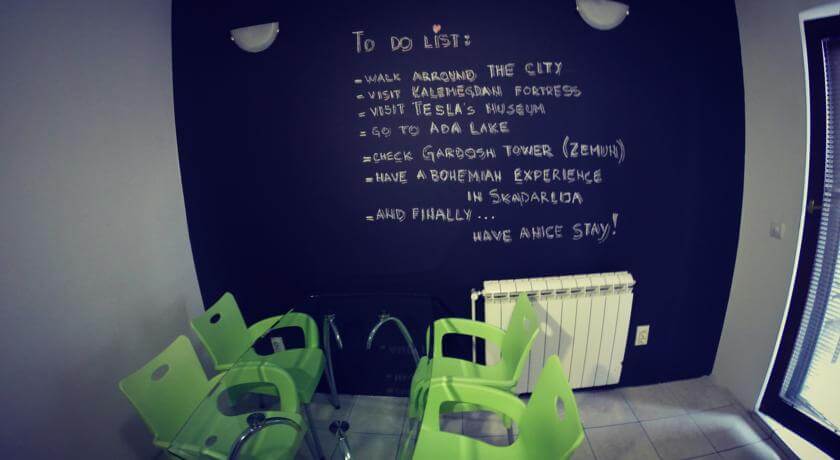 TO DO LIST:
- WALK ARROUND THE CITY
- VISIT KALEMEGDAN FORTRESS
- VISIT TESLA'S MUSEUM
- GO TO ADA LAKE
- CHECK GARDOSH TOWER (ZEMUN)
- HAVE A BOHEMIAN EXPERIENCE
IN SKADARLIJA
- AND FINALLY...
HAVE A NICE STAY!